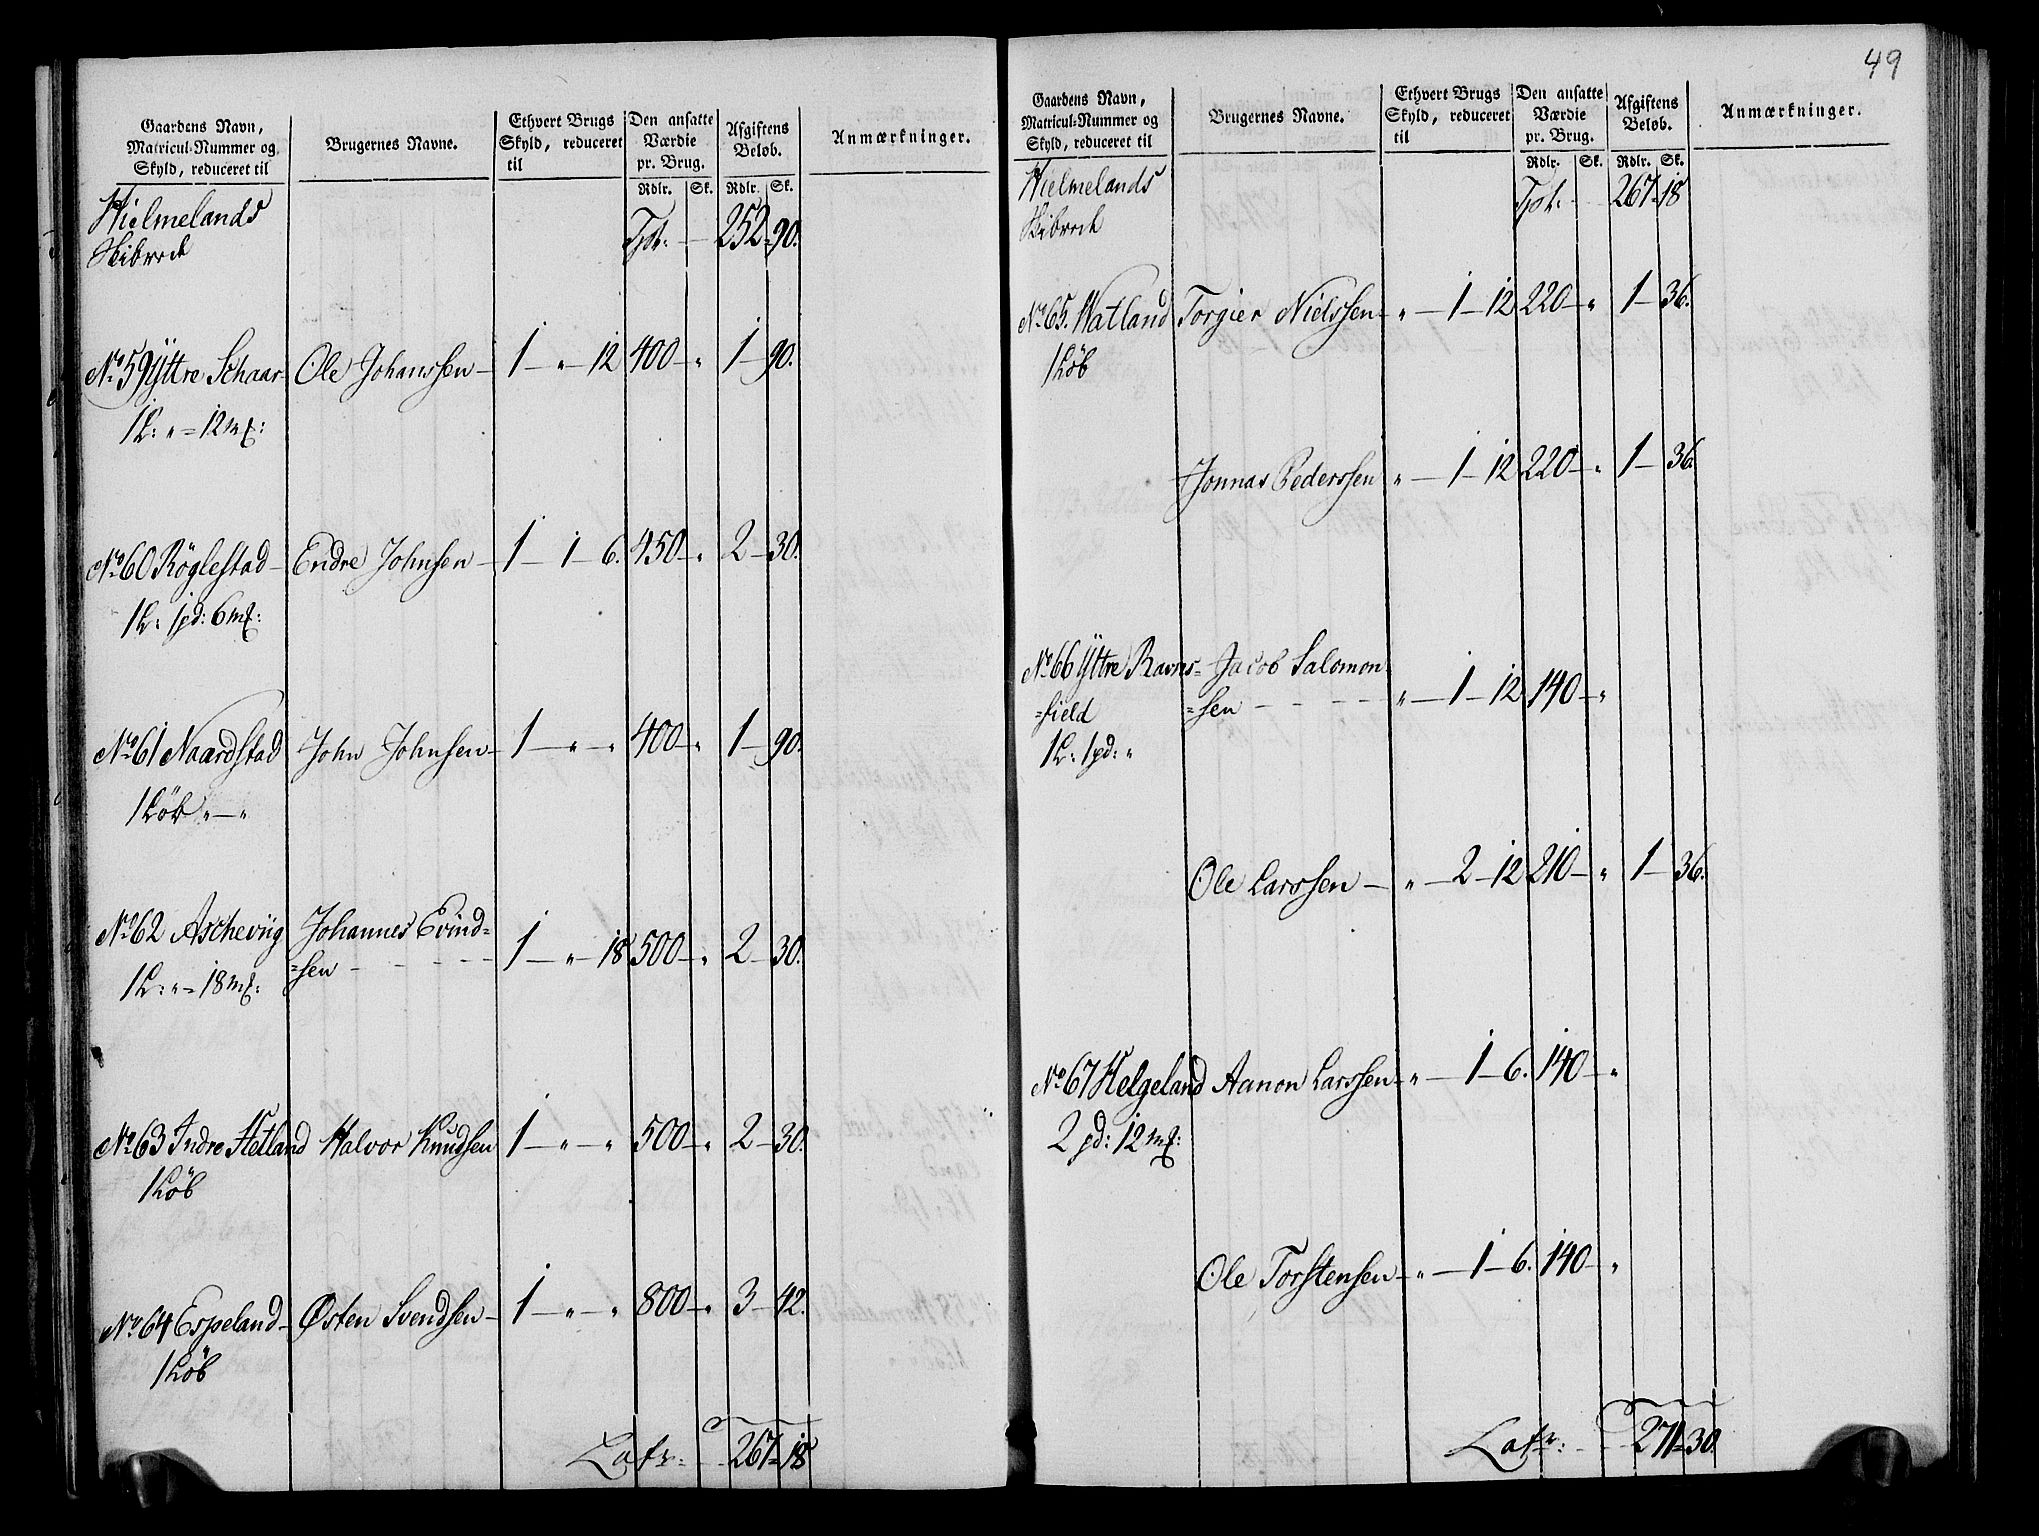 Gaardens Navn, Matricul-Nummer og Skyld, reduceret til
Brugernes Navne.
Ethvert Brugs Skyld, reduceret til
Den ansatte Værdie pr. Brug.
Afgiftens Beløb.
Anmærkninger.
Rdlr. Sk. Rdlr. Sk.
Hielmelands
Skibrede
Tpt: 252 = 90.
No 59 Yttre Schaar Ole Johanssen 1 — " — 12 400 — " 1 — 90.
1 L: " = 12 mk:
No 60 Röglestad Endre Johnsen 1 — 1 — 6. 450 — " 2 — 30.
1 L: 1 pd: 6 mk:
No 61 Naardstad John Johnsen 1 — " — " 400 — " 1 — 90.
1 Löb " — "
No 62 Aschevüg Johannes Evind=
=sen 1 — " — 18 500 — " 2 — 30.
1 L: " = 18 mk:
No 63 Indre Hetland Halvor Knudsen 1 — " — " 500 — " 2 — 30.
1 Löb
No 64 Espeland Østen Svendsen 1 — " — " 800 — " 3 — 42.
1 Löb
Latr: 267 = 18
49
Gaardens Navn, Matricul-Nummer og Skyld, reduceret til
Brugernes Navne.
Ethvert Brugs Skyld, reduceret til
Den ansatte Værdie pr. Brug.
Afgiftens Beløb.
Anmærkninger.
Rdlr. Sk. Rdlr. Sk.
Hielmelands
Skibrede
Tpt: 267 = 18
No 65. Watland Torgier Nielssen " — 1 — 12 220 — " 1 — 36.
1 Löb
Jonnas Pederssen " — 1 — 12 220 — " 1 — 36.
No 66 Yttre Ravns= Jacob Salomon
=field =sen " — 1 — 12 140 — "
1 L: 1 pd: "
Ole Larssen " — 2 — 12 210 — " 1 — 36.
No 67 Helgeland Aanon Larssen " — 1 — 6. 140 — "
2 pd: 12 mk:
Ole Torstensen " — 1 — 6. 140 — "
Latr: 271 = 30.